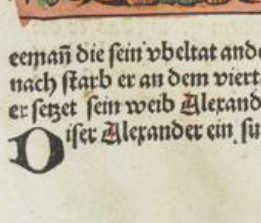 eemañ die sein vbeltat and
nach starb er an dem viert
er setzet sein weib Alexand
Diser Alexander ein sü